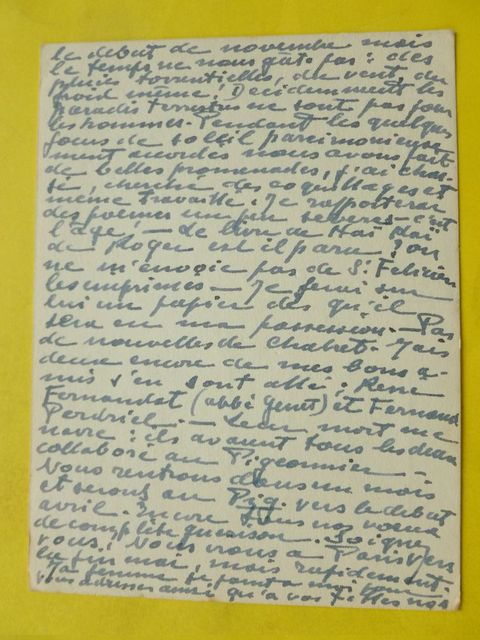 le début de novembre mais
le temps ne nous gâte pas : des
pluies torrentielles, du vent, du
froid même ! Décidemment les
paradis terrestres ne sont pas pour
les hommes. Pendant les quelques
jours de soleil parcimonieuse-
ment accordés nous avons fait
de belles promenades, j'ai chas-
sé, cherché des coquillages et
même travaillé. Je rapporterai
des poèmes un peu sévères – c'est
l'âge ! – Le livre de Haï Kaï
de Roger est il paru ? on
ne m'envoie pas de St Félicien
les imprimés – Je ferai sur
lui un papier dès qu'il
sera en ma possession. – Pas
de nouvelles de Chabret. – Mais
deux encore de mes bons a-
mis s'en sont allé : René
Fernandat (abbé Genet) et Fernand
Perdriel. – Leur mort me
navre : ils avaient tous les deux
collaboré au Pigeonnier –
Nous rentrons dans un mois
et serons au Pig. vers le début
avril. Encore tous nos voeux
de complète guérison. Soignez
vous ! Nous irons à Paris vers
la fin mai, mais rapidement
Ma femme se joint à moi pour
vous adresser ainsi qu'à vos filles nos